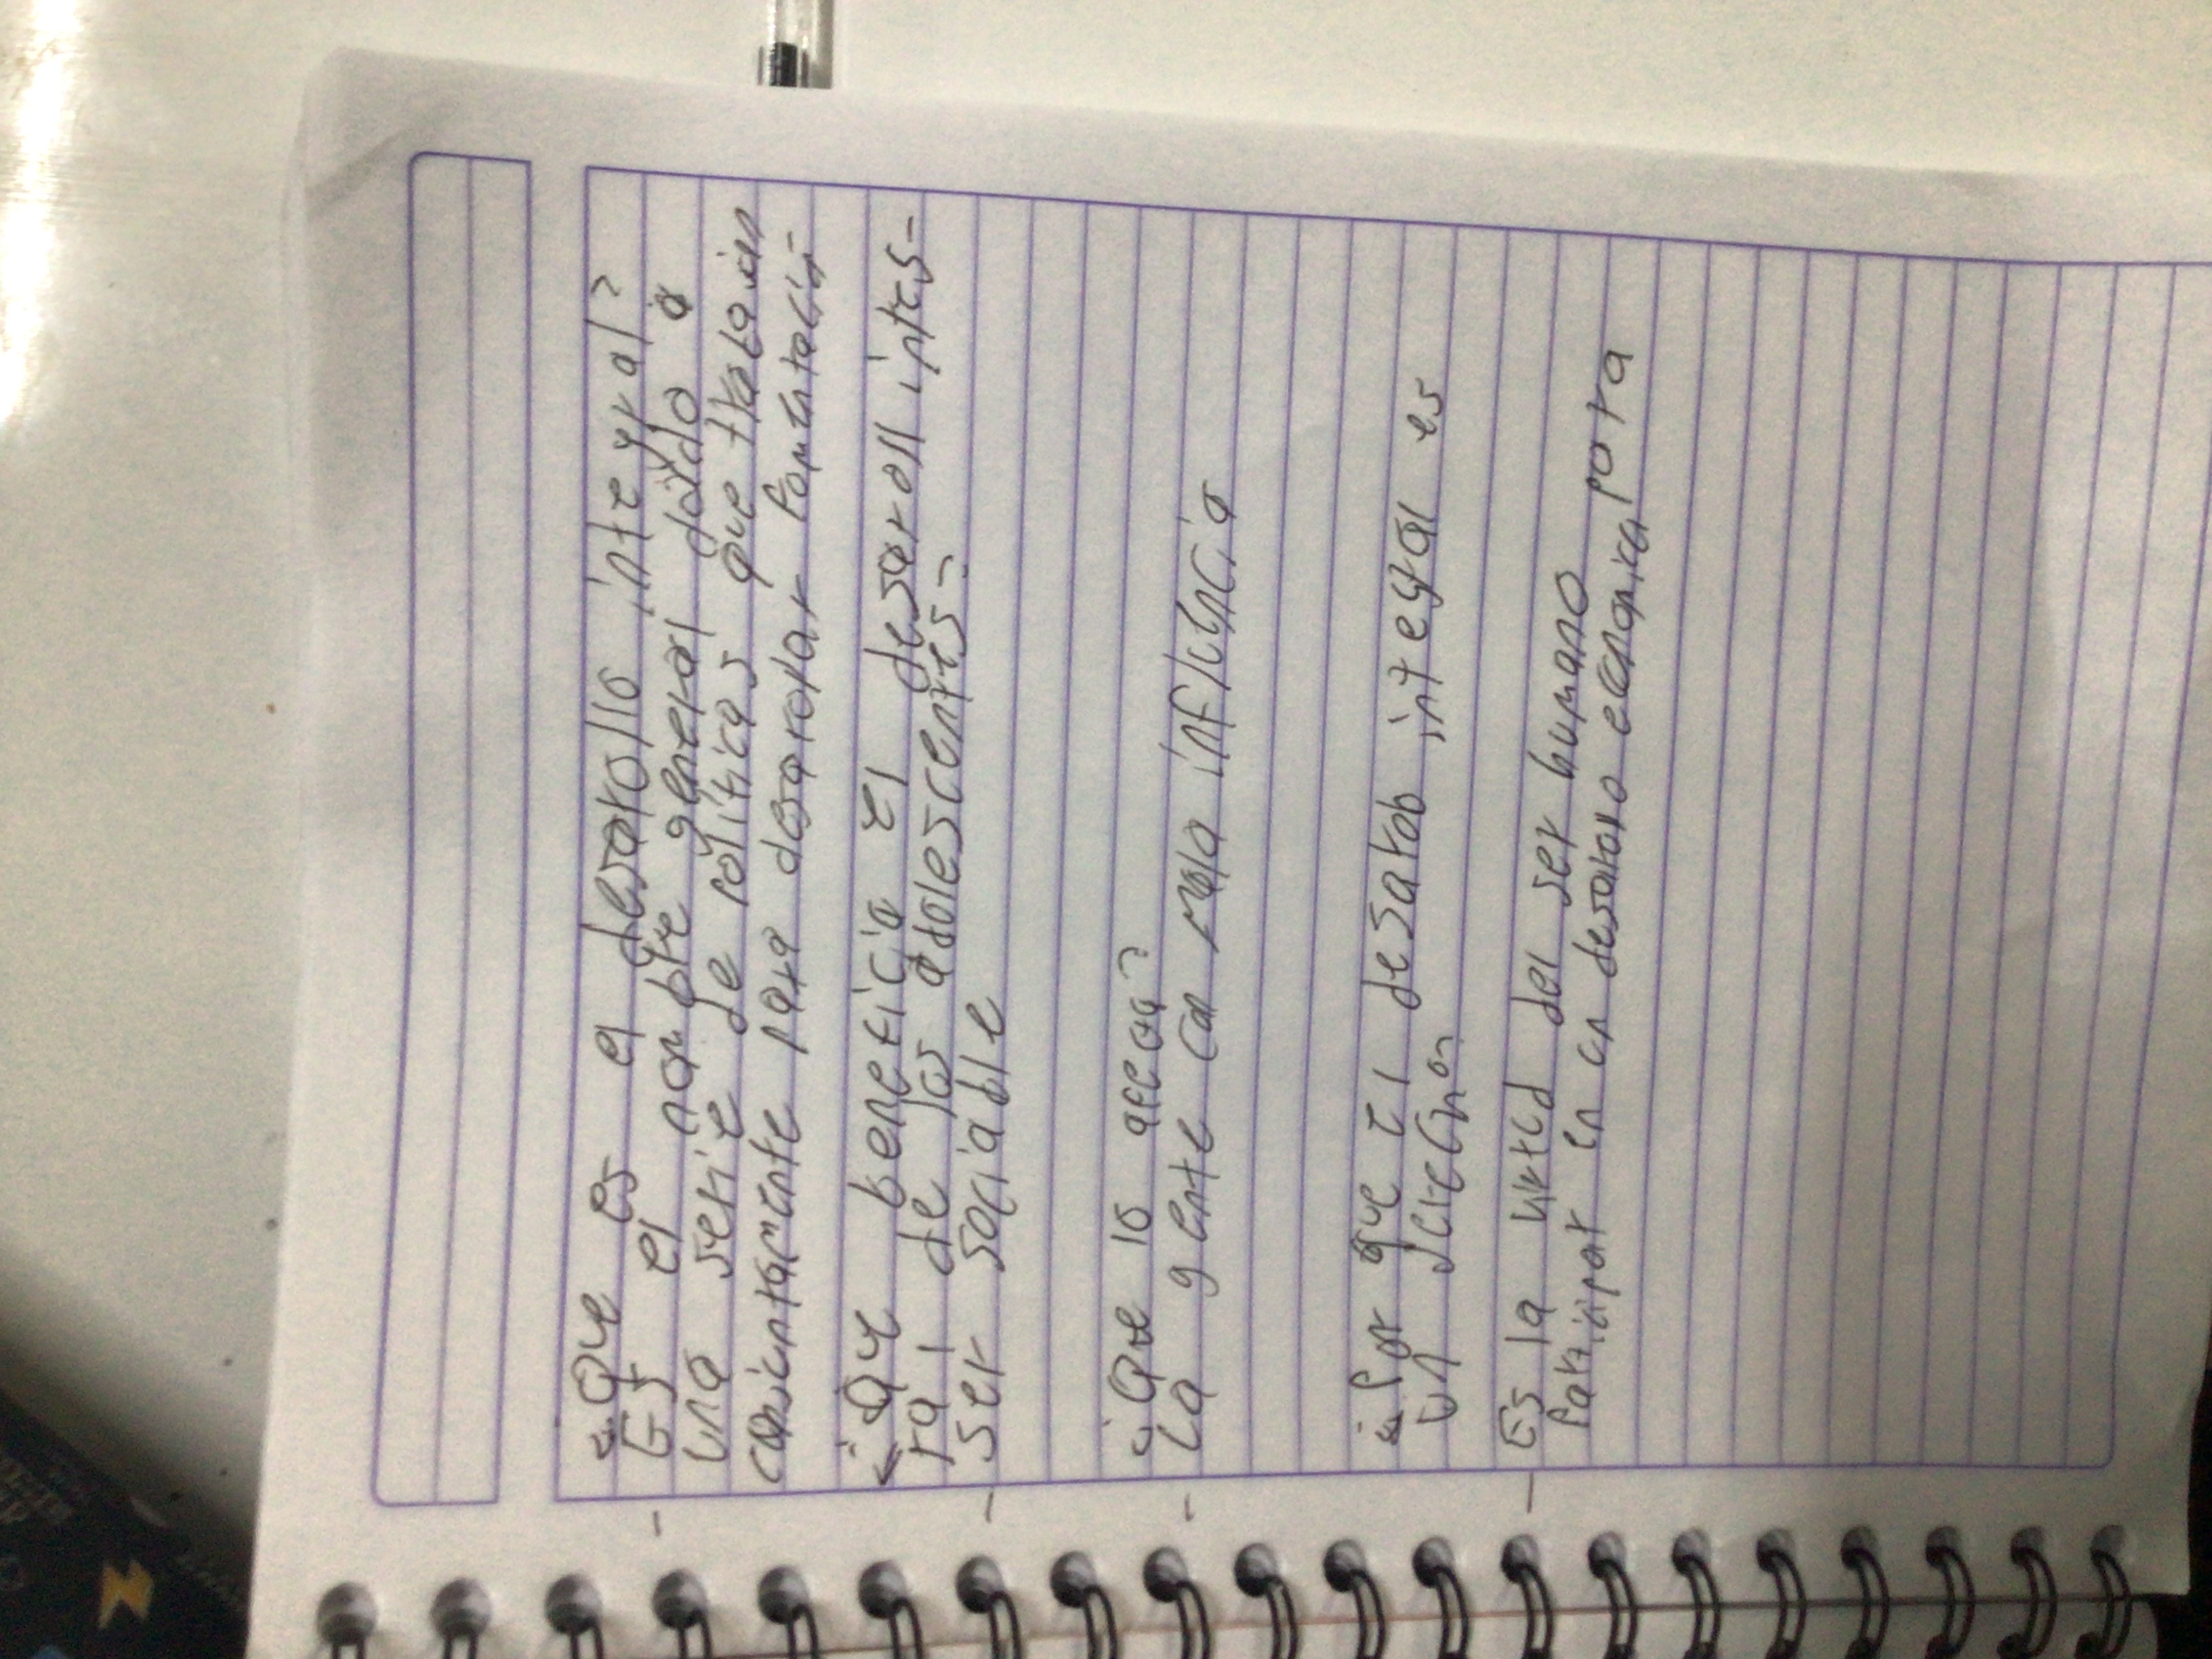 ¿Que es el desarollo integral?
Es el nombre general daido a
una serie de políticas que trabajan
conjuntamente para desarrolar
¿Que beneficia el desaroll integ-
ral de los adolescentes-
ser sociable
¿Que lo afecta?
La gente con mala influencia
¿Por que el desarob integral es
un derecho
Es la del ser humano
Participar en un desarono economica para